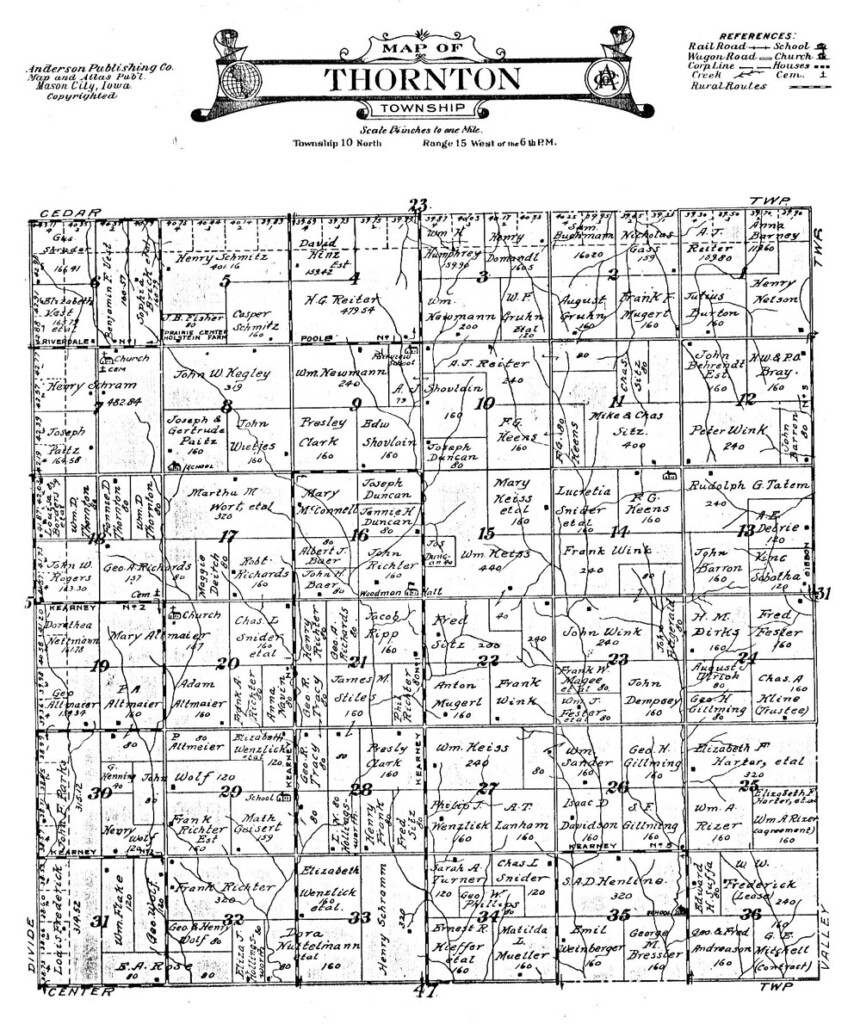 Anderson Publishing Co.
Map and Atlas Publ.
Mason City, Iowa
Copyrighted
MAP OF
THORNTON
TOWNSHIP
Scale 1¾ inches to one Mile.
Township 10 North Range 15 West of the 6th P.M.
REFERENCES:
Rail Road School
Wagon Road Church
Corp Line Houses
Creek Cem.
Rural Routes
CEDAR 23 TWP.
TWP.
Gus
Shrader
166.41
6
Elizabeth
Vest
etal
Benjamin F. Veil
Sophia
Brick etal
RIVERDALE No 1
Henry Schmitz
401.16
5
J.B. Fisher
80
PRAIRIE CENTER
HOLSTEIN FARM
Casper
Schmitz
160
David
Hinz
Est
159.42
4
H.G. Reiter
479.54
POOLE No 1
Wm H.
Humphrey
159.96
Henry
Domandl
160.5
3
Wm.
Newmann
200
W.F.
Gruhn
Etal
120
Sam.
Buchmann
160.20
Nicholas
Gass
159
2
August
Gruhn
160
Frank F.
Mugerl
160
A.J.
Reiter
109.80
Anna
Barney
119.60
1
Julius
Burton
160
Henry
Nelson
Church
CEM
Henry Schram
7 482.84
Joseph
Paitz
164.58
John W Hegley
319
Joseph &
Gertrude
Paitz
160
8
John
Wietjes
160
SCHOOL
Wm. Newmann
240
School
A. J.
79
Presley
Clark
160
9
Edw
Shovlain
160
A.J. Reiter
240
Shovlain
160
10
Joseph
Duncan
80
F.G.
Keens
160
Chas.
Sitz
80
11
Mike & Chas
Sitz.
400
F.G.
Keens
80
John
Behrendt
Est
160
H.W. & P.O.
Bray.
160
12
Peter Wink
240
John
Barron
80
No 3
Wm. D.
Thornton
80
Fannie D
Thornton
80
Wm. D
Thornton
80
18
John W.
Rogers
163.30
Geo A. Richards
137
80
Cem
Martha M
Wort, etal
320
17
Maggie
Deitch
80
Robt.
Richards
160
Mary
McConnell
80
Joseph
Duncan
80
Jennie H
Duncan
80
16
Albert J.
Baer
80
John H.
Baer
80
John
Richter
160
Woodman Hall
Mary
Heiss
etal
160
15
Jos
Duncan
40
Wm. Heiss
440
Lucretia
Snider
etal
160
F.G.
Keens
160
14
Frank Wink
240
Rudolph G. Tatem
240
13
A.E.
Debrie
140
John
Barron
160
King
Sabatha
120
GIBBON
5 31
KEARNEY No 2
Dorothea
Nettmann
Mary Altmaier
167
19
Geo
Altmaier
159.54
P A
Altmaier
160
Church
Chas. L
Snider
etal
160
20
Adam
Altmaier
160
Frank A.
Richter
80
Anna
Mavin
80
Henry
Richter
80
Geo. A.
Richards
80
Jacob
Ripp
160
21
Geo R.
Tracy
80
James M.
Stiles
160
Phil
Richter
80
Fred
Sitz 200
40
240
22
Anton
Mugerl
160
Frank
Wink
John Wink
240
John
Fitzgerald
80
23
Frank W.
Magee
etal 80
Wm. J.
Fester
etal 80
John
Dempsey
160
H. M.
Dirks
160
Fred
Fester
160
24
August
Ulrich 80
Geo H
Gillming
80
Chas. A
Kline
(Trustee)
160
80
G.
Henning
40
John Wolf 120
30
John F. Parks
315.12
Henry Wolf
120
KEARNEY No 1
P
Altmeier
80
Elizabeth
Wenzlick
etal
120
29
School
Frank
Richter
Est
160
Math
Geisert
159
KEARNEY
Geo. R.
Tracy
80
80
Presly
Clark
160
28
Henry
Frank
80
Fred
Sitz
80
KEARNEY
Wm. Heiss
240
80
27
Philip J.
Wenzlick
160
A.T.
Lanham
160
Wm.
Sander
160
Geo. H.
Gillming
160
26
Isaac D
Davidson
160
S.F.
Gillming
160
KEARNEY No 5
Elizabeth F
Harter, etal
320
25
Wm. A.
Rizer
160
Elizabeth F
Harter, etal
Wm. A Rizer
(agreement)
160
Louis Frederick
314.52
31
Wm. Flake
120
Geo Wolf
120
E.A. Rose
80
Frank Richter
320
32
Geo & Henry
Wolf 80
80
Eliza J.
80
Elizabeth
Wenzlick
etal.
160
33
Dora
Nuttelmann
etal
160
Henry Schramm
320
Sarah A
Turner
120
Chas L
Snider
120
Geo W
Phillips
80
34
Ernest R.
Kieffer
etal
160
Matilda
L
Mueller
160
S.A.D. Henline.
320
35
SCHOOL
Emil
Weinberger
160
George
M.
Bressler
160
Edward
H. Juffa
80
W W.
Frederick
(Lease)
240
36
Geo & Fred
Andreason
160
160
G. E.
Mitchell
(Contract)
DIVIDE
VALLEY
CENTER 47 TWP